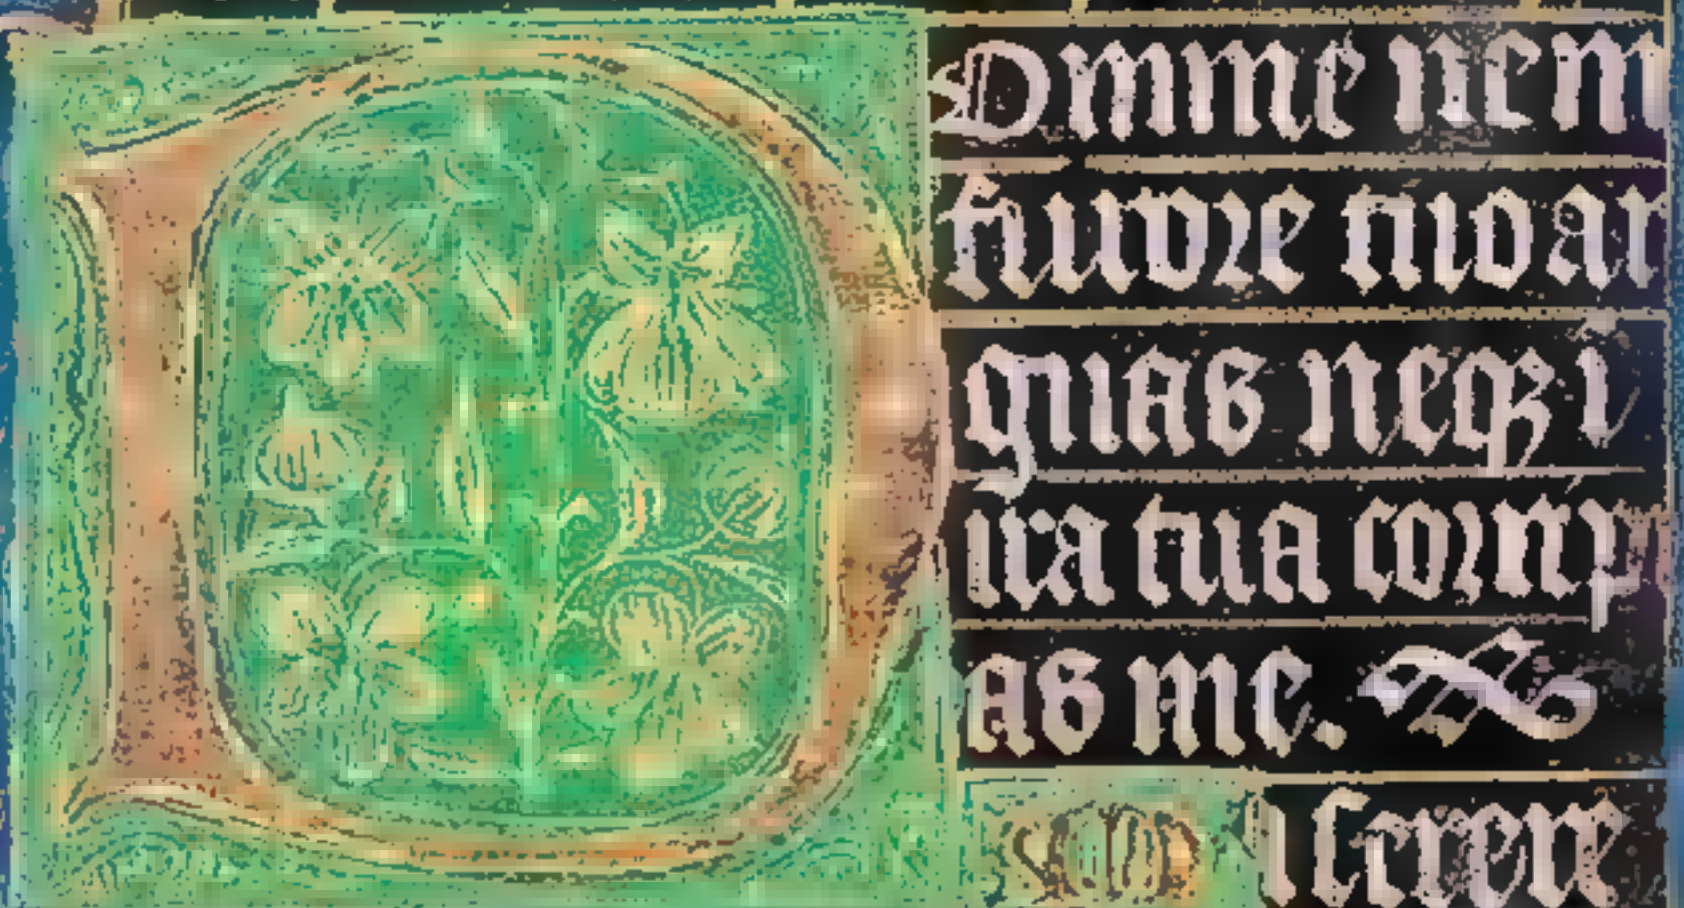 DOmine ne in
furore tuo ar
guas neqꝫ i
ira tua corrip
as me.
Miserere